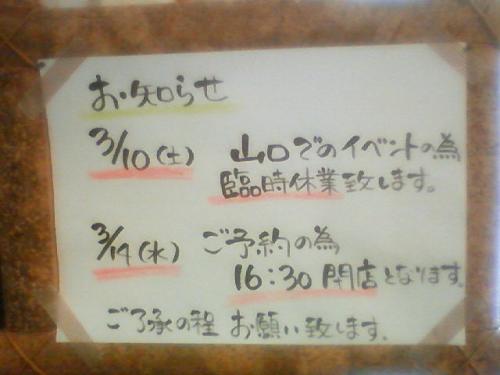 お知らせ
3/10(土) 山口でのイベントの為
臨時休業致します。
3/14(水) ご予約の為
16:30 閉店となります。
ご了承の程 お願い致します。